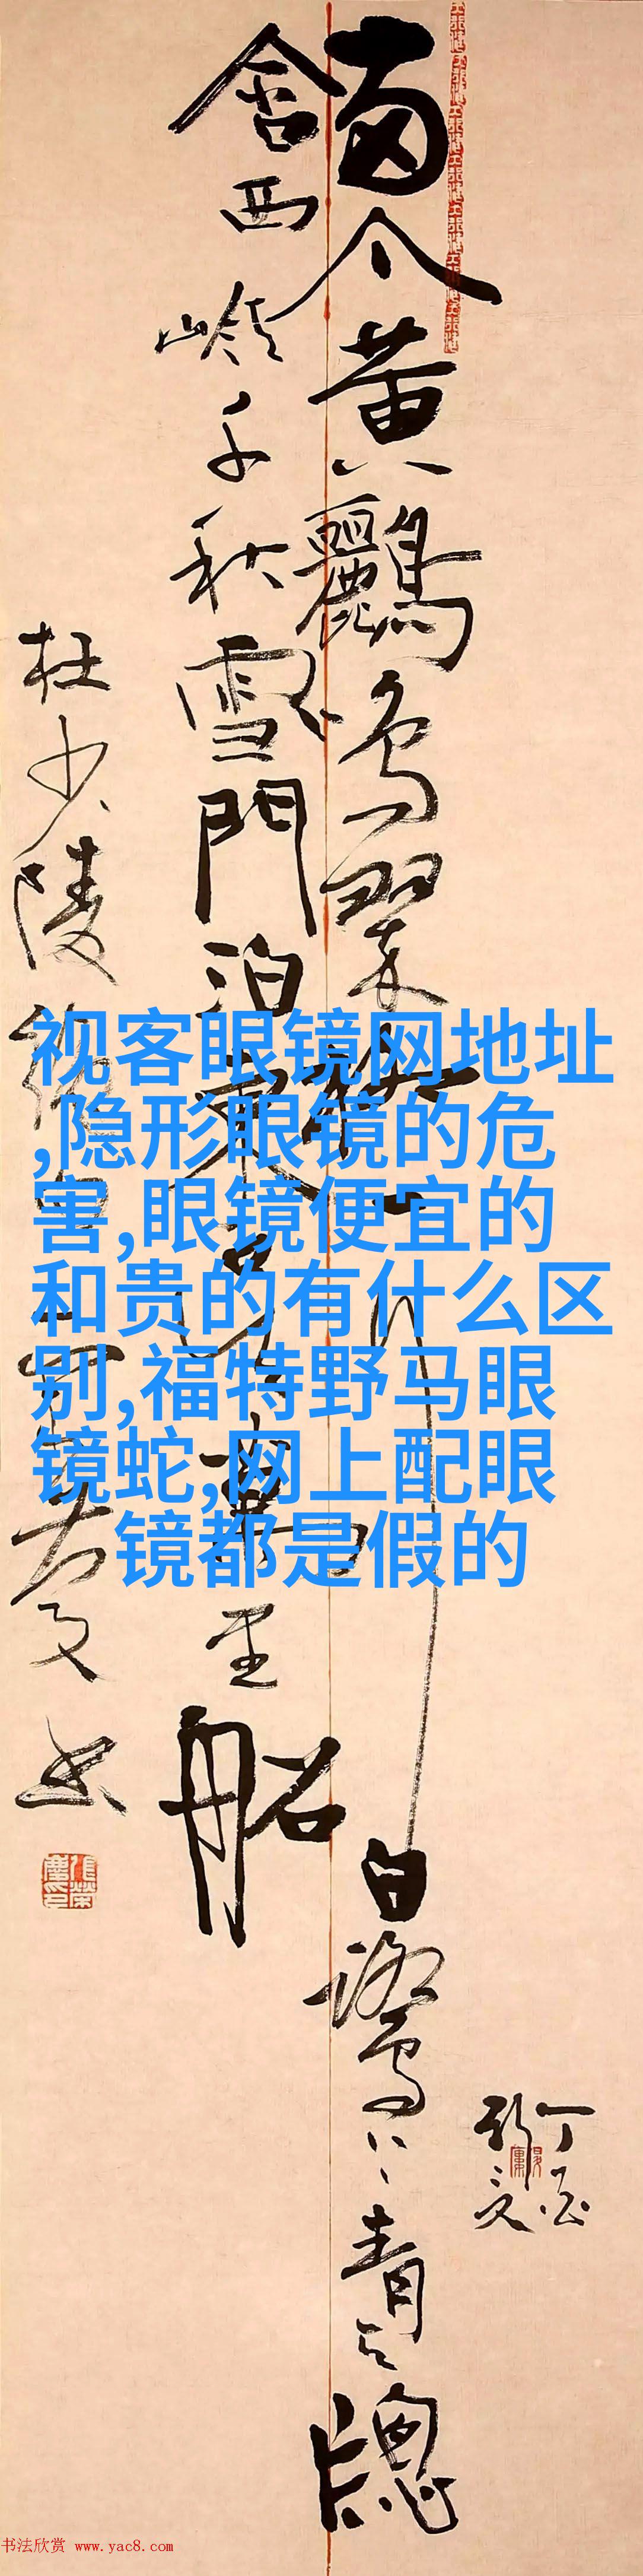 兩个黃鸝鳴翠柳一行白鷺上青天牕
含西嶺千秋雪門泊東吳萬里船
杜少陵絕句一首
视客眼镜网地址
,隐形眼镜的危
害,眼镜便宜的
和贵的有什么区
别,福特野马眼
镜蛇,网上配眼
镜都是假的
书法欣赏 www.yac8.com